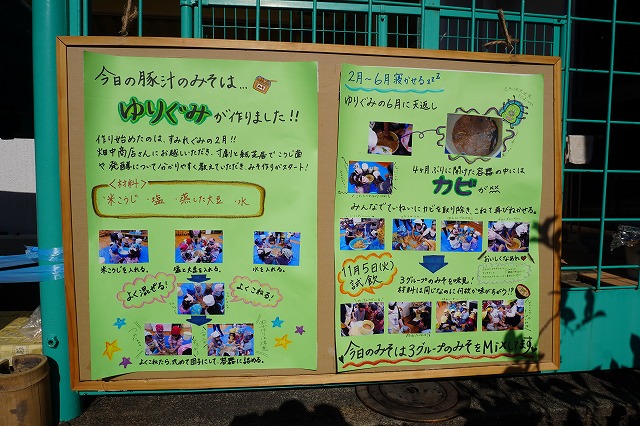 今日の豚汁のみそは…
ゆりぐみが作りました!!
作り始めたのは、すみれぐみの2月!!
畑中商店さんにお越しいただき、寸劇と紙芝居でこうじ菌
や発酵について分かりやすく教えていただき、みそ作りがスタート!
<材料>
・米こうじ ・塩 ・蒸した大豆 ・水
米こうじを入れる。
塩と大豆を入れる。
水を入れる。
よく混ぜる!
よくこねる!
よくこねたら、丸めて団子にして、容器に詰める。
2月〜6月寝かせるzzz
ゆりぐみの6月に天返し
4ヶ月ぶりに開けた容器の中には
カビが
みんなでていねいにカビを取り除き、こねて再びねかせる。
11月5日(火)
試飲
おいしくなあれ
3グループのみそを味見!
材料は同じなのに何故か味がちがう!?
今日のみそは3グループのみそをMixします。